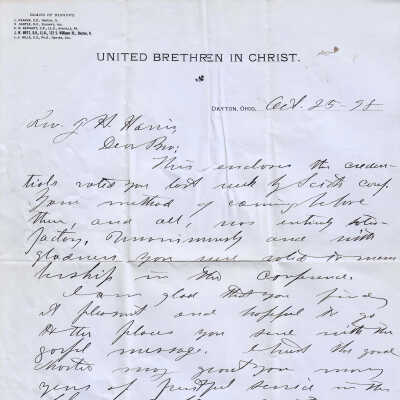 BOARD OF BISHOPS
UNITED BRETHREN IN CHRIST.
DAYTON, OHIO, Oct. 25- 98
Rev. J. H. Harris
Dear Bro:
This encloses the creden-
tials voted you last week by conf.
Your method of coming before
them, and all, was entirely satis-
factory. Unanimously and with
gladness you were voted to mem
bership in the conference.
I am glad that you find
it pleasant and hopeful to go
to the places you serve with the
gospel message. I trust the good
may grant you many
years of fruitful service in the